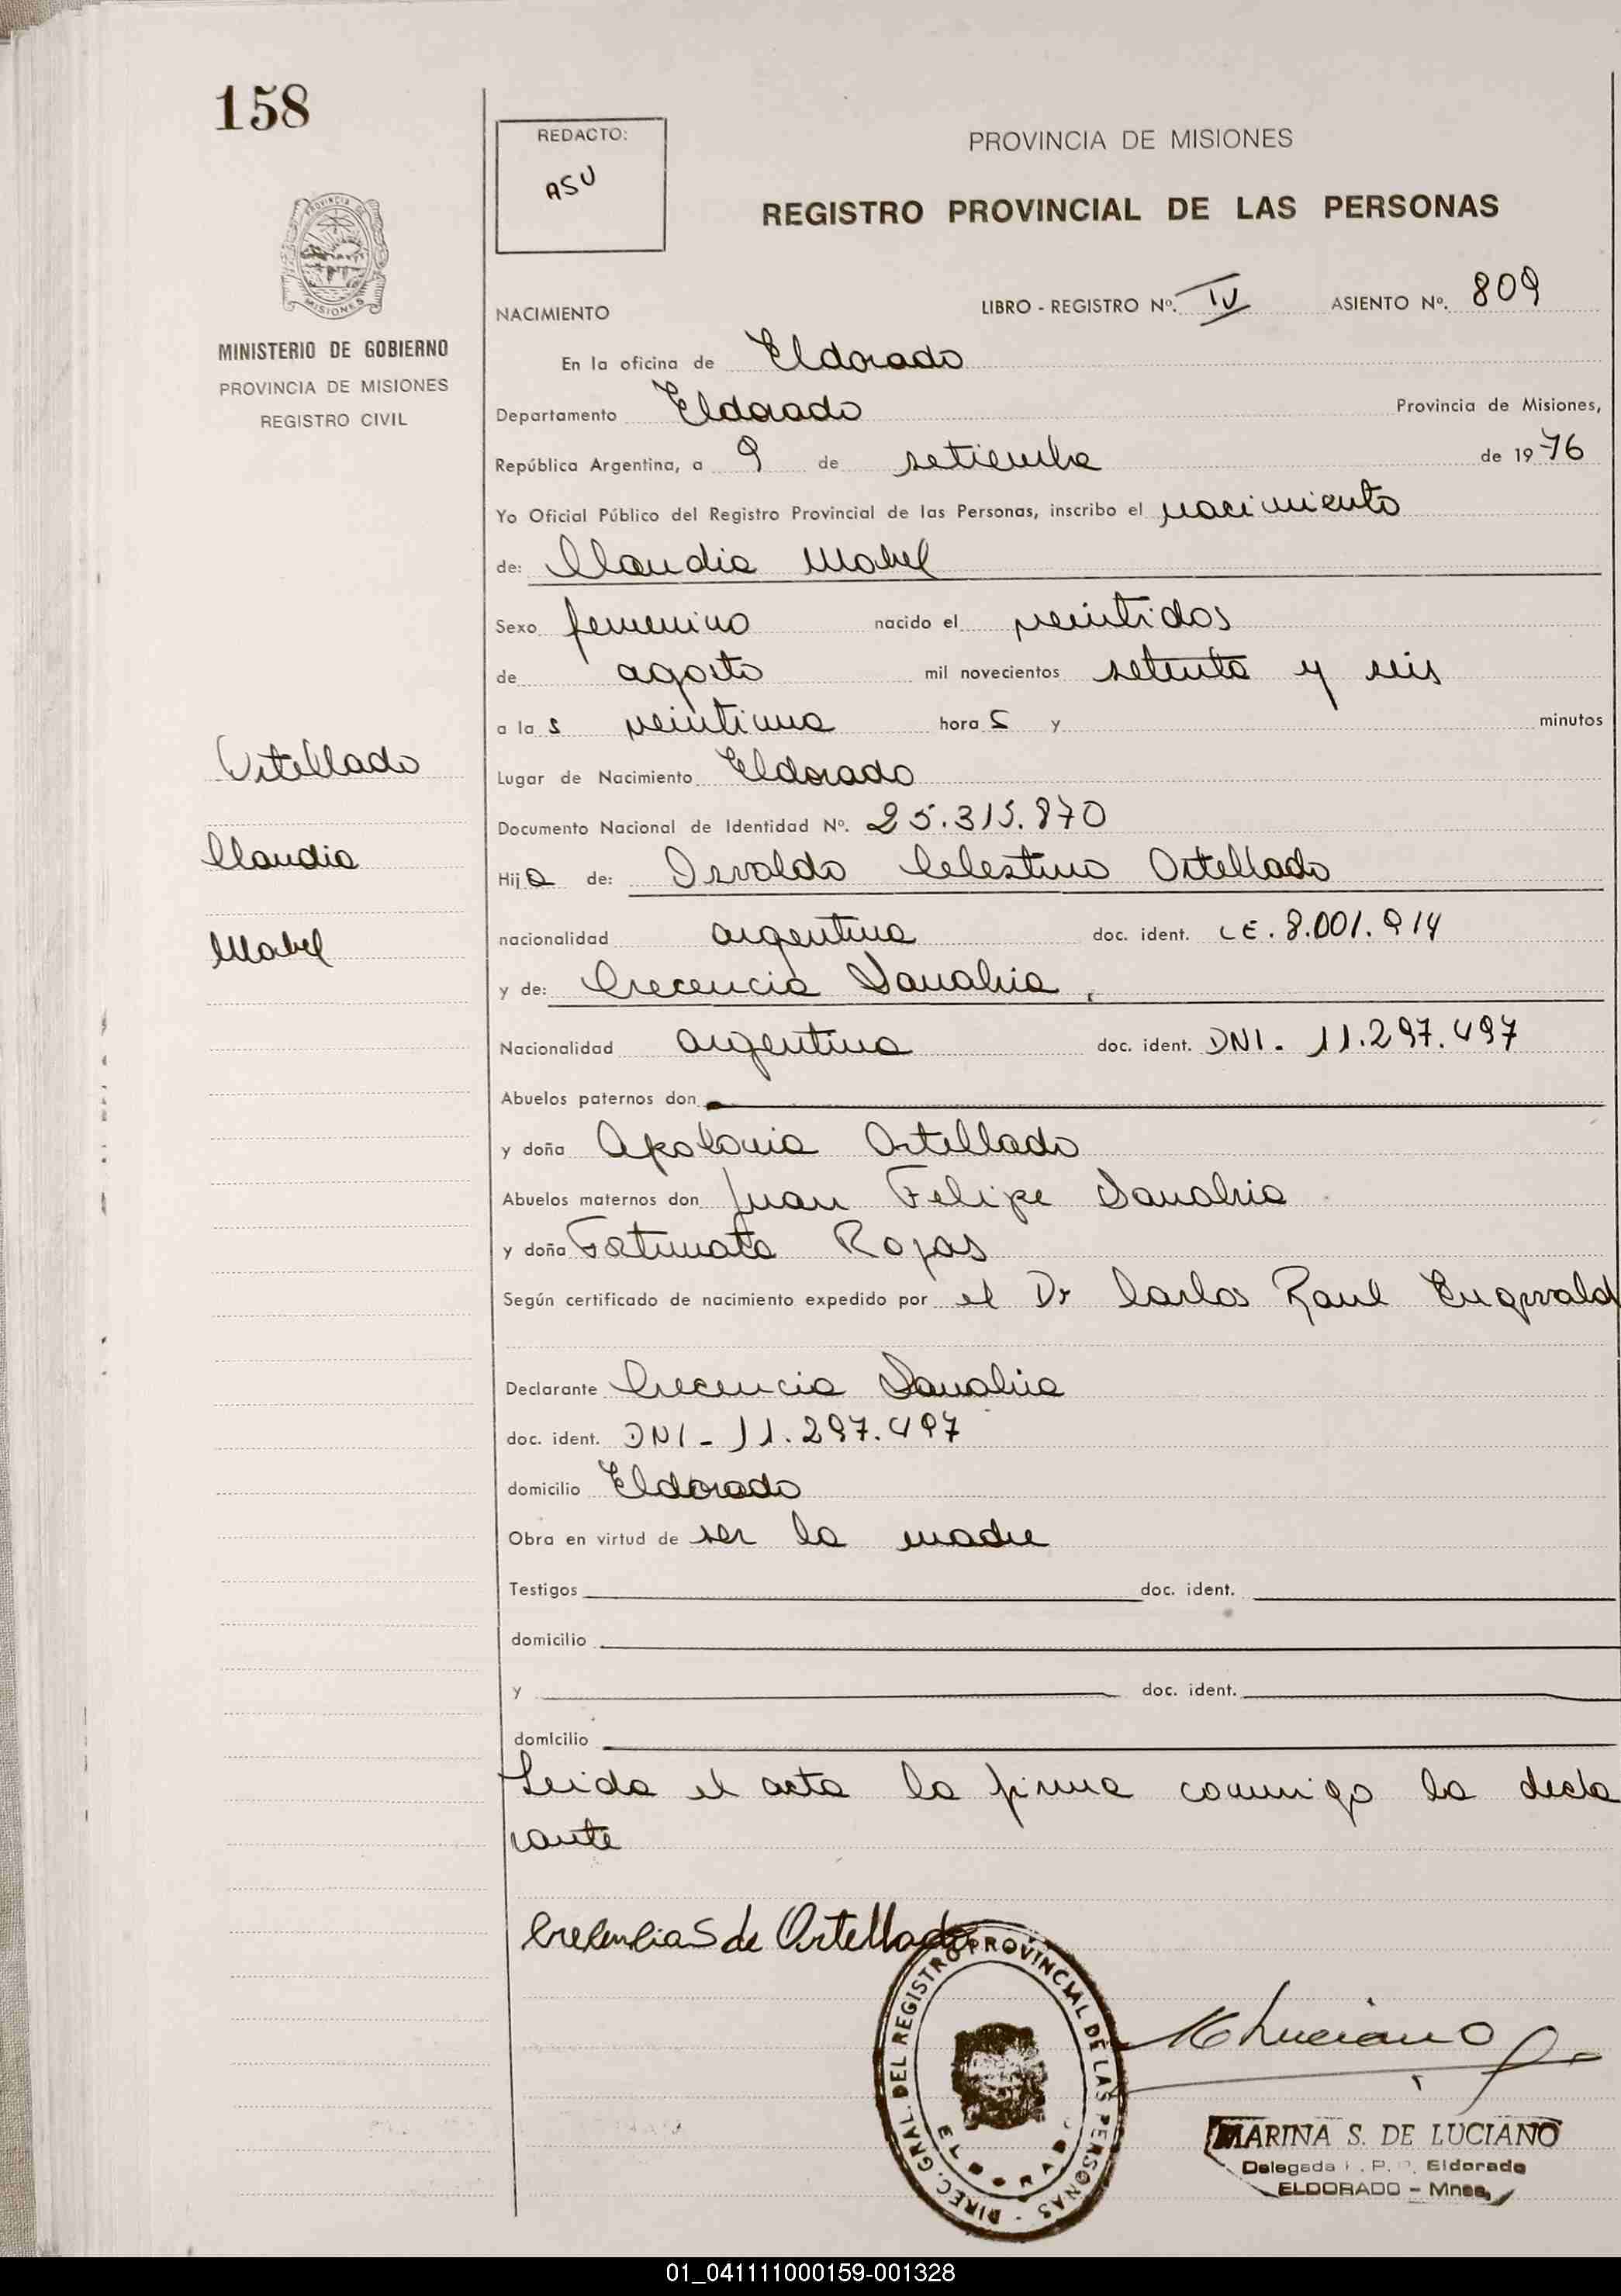 158
REDACTO:
ASU
PROVINCIA DE MISIONES
REGISTRO PROVINCIAL DE LAS PERSONAS
PROVINCIA DE
MISIONES
MINISTERIO DE GOBIERNO
PROVINCIA DE MISIONES
REGISTRO CIVIL
NACIMIENTO LIBRO - REGISTRO Nº. IV ASIENTO Nº. 809
En la oficina de Eldorado
Departamento Eldorado Provincia de Misiones,
República Argentina, a 9 de setiembre de 1976
Yo Oficial Público del Registro Provincial de las Personas, inscribo el nacimiento
de: Claudia Mabel
Sexo femenino nacido el veintidos
de agosto mil novecientos setenta y seis
a las veintiuna horas y minutos
Ortellado
Lugar de Nacimiento Eldorado
Documento Nacional de Identidad Nº. 25.315.870
Claudia
Hija de: Osvaldo Celestino Ortellado
Mabel
nacionalidad argentina doc. ident. LE. 8.001.914
y de: Crecencia Sanabria
Nacionalidad argentina doc. ident. DNI. 11.297.497
Abuelos paternos don
y doña Apolonia Ortellado
Abuelos maternos don Juan Felipe Sanabria
y doña Fortunata Rojas
Según certificado de nacimiento expedido por el Dr Carlos Raul
Declarante Crecencia Sanabria
doc. ident. DNI - 11.297.497
domicilio Eldorado
Obra en virtud de ser la madre
Testigos doc. ident.
domicilio
y doc. ident.
domicilio
Leida el acta la firma conmigo la decla
rante
Crecencia S de Ortellado
DIREC. GRAL. DEL REGISTRO PROVINCIAL DE LAS PERSONAS -
ELDORADO
Luciano
MARINA S. DE LUCIANO
Delegada R. P. P. Eldorado
ELDORADO - Mnes.
01_041111000159-001328